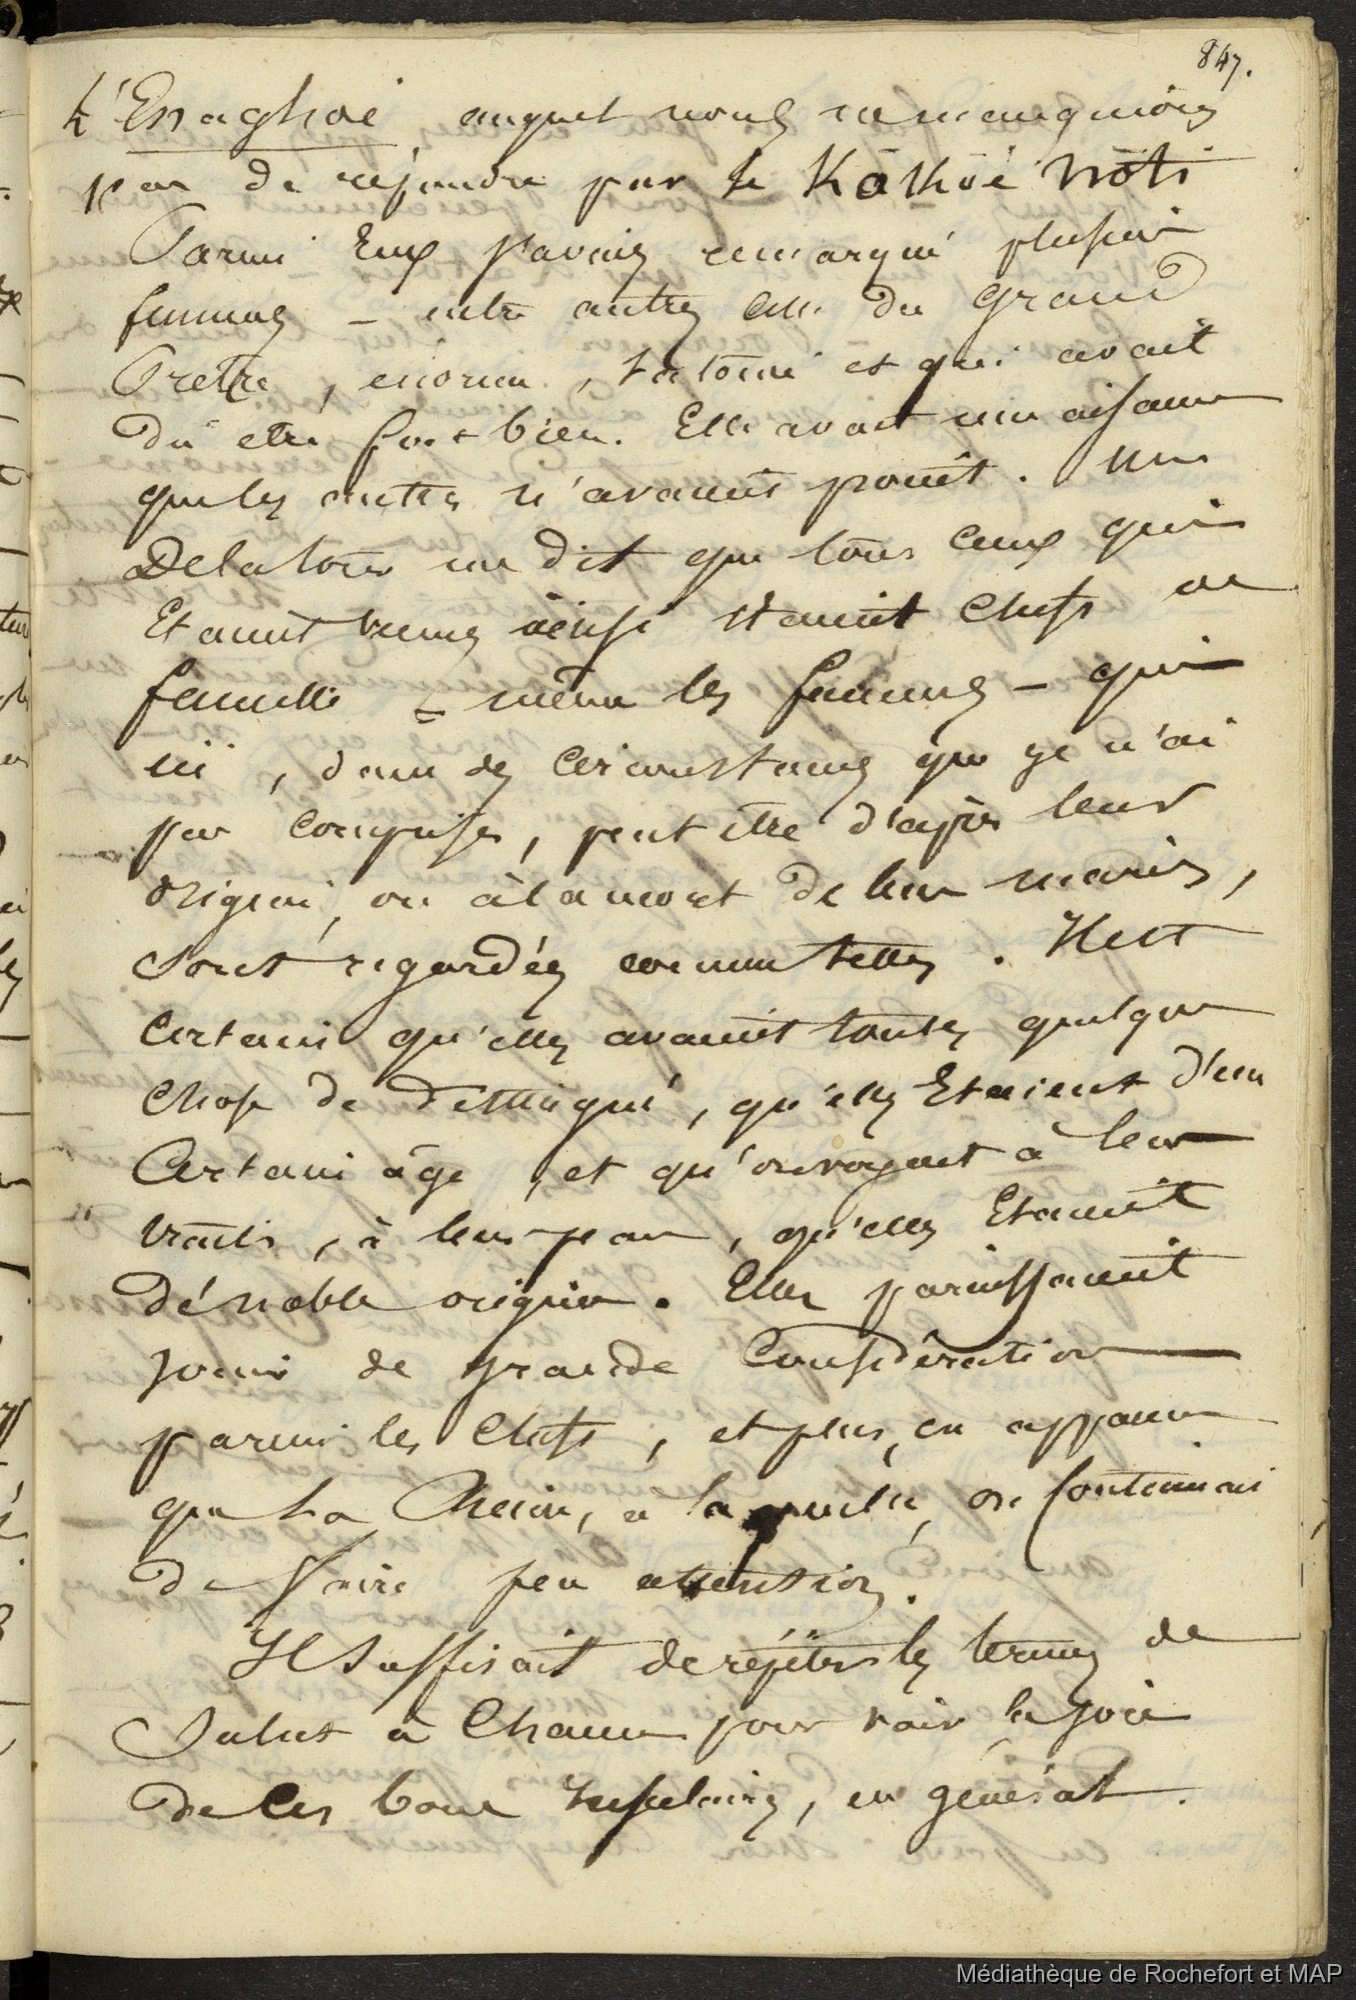 847.
L'Enaghoé auquel nous ne manquions
pas de répondre par le Kākōe Nōti
Parmi Eux j'avais remarqué plusieurs
femmes – entre autres celle du grand
Prêtre, énorme, tatouée et qui avait
du etre fort bien. Elle avait une aisance
que les autres n'avaient point. Mr
Delatour me dit que tous ceux qui
Etaient venus ainsi étaient Chefs de
famille – même les femmes – qui
ici, dans des Circonstances que je n'ai
pas comprises, peut être d'après leur
origine, ou à la mort de leur maris,
sont regardées comme telles. Il est
Certain qu'elles avaient toutes quelque
Chose de distingué, qu'elles Etaient d'un
Certain âge, et qu'on voyait à leur
traits, à leur peau, qu'elles Etaient
dé noble origine. Elles paraissaient
jouir de grande Considération
parmi les Chefs, et plus, en apparence
que La Reine, à laquelle, on
de faire peu attention.
Il suffisait de répéter les termes de
Salut à Chacun pour voir la joie
de Ces bons Insulaires, en général.
Médiathèque de Rochefort et MAP